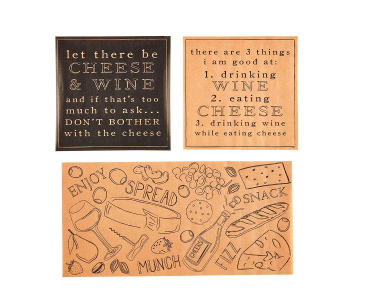 let there be
CHEESE
& WINE
and if that's too
much to ask...
DON'T BOTHER
with the cheese
there are 3 things
i am good at:
1. drinking
WINE
2. eating
CHEESE
3. drinking wine
while eating cheese
ENJOY
SPREAD
SNACK
CHEERS
FIZZ
MUNCH